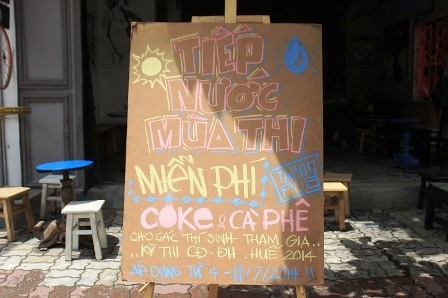 TIẾP
NƯỚC
MÙA THI
MIỄN PHÍ
COKE & CÀ PHÊ
CHO CÁC THÍ SINH THAM GIA..
KỲ THI CĐ-ĐH . HUẾ 2014
ÁP DỤNG TỪ 4 - /7/2014 !!